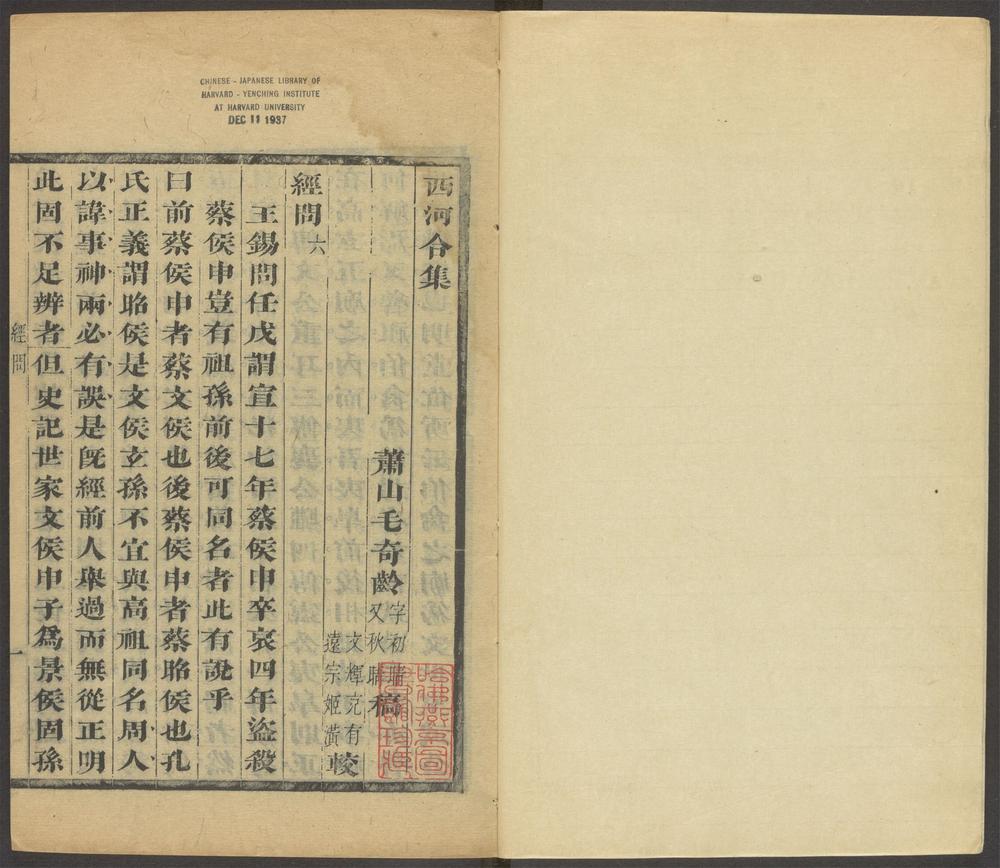 CHINESE - JAPANESE LIBRARY OF
HARVARD - YENCHING INSTITUTE
AT HARVARD UNIVERSITY
DEC 11 1937
西河合集
蕭山毛奇齡字初晴又秋晴稿
文輝克有
遠宗姬潢較
經問六
王錫問任戊謂宣十七年蔡侯申卒哀四年盜殺
蔡侯申豈有祖孫前後可同名者此有說乎
曰前蔡侯申者蔡文侯也後蔡侯申者蔡昭侯也孔
氏正義謂昭侯是文侯玄孫不宜與高祖同名周人
以諱事神兩必有誤是旣經前人舉過而無從正明
此固不足辨者但史記世家文侯申子爲景侯固孫
經問
一